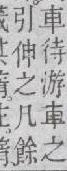 車待游車之
引伸之凡餘